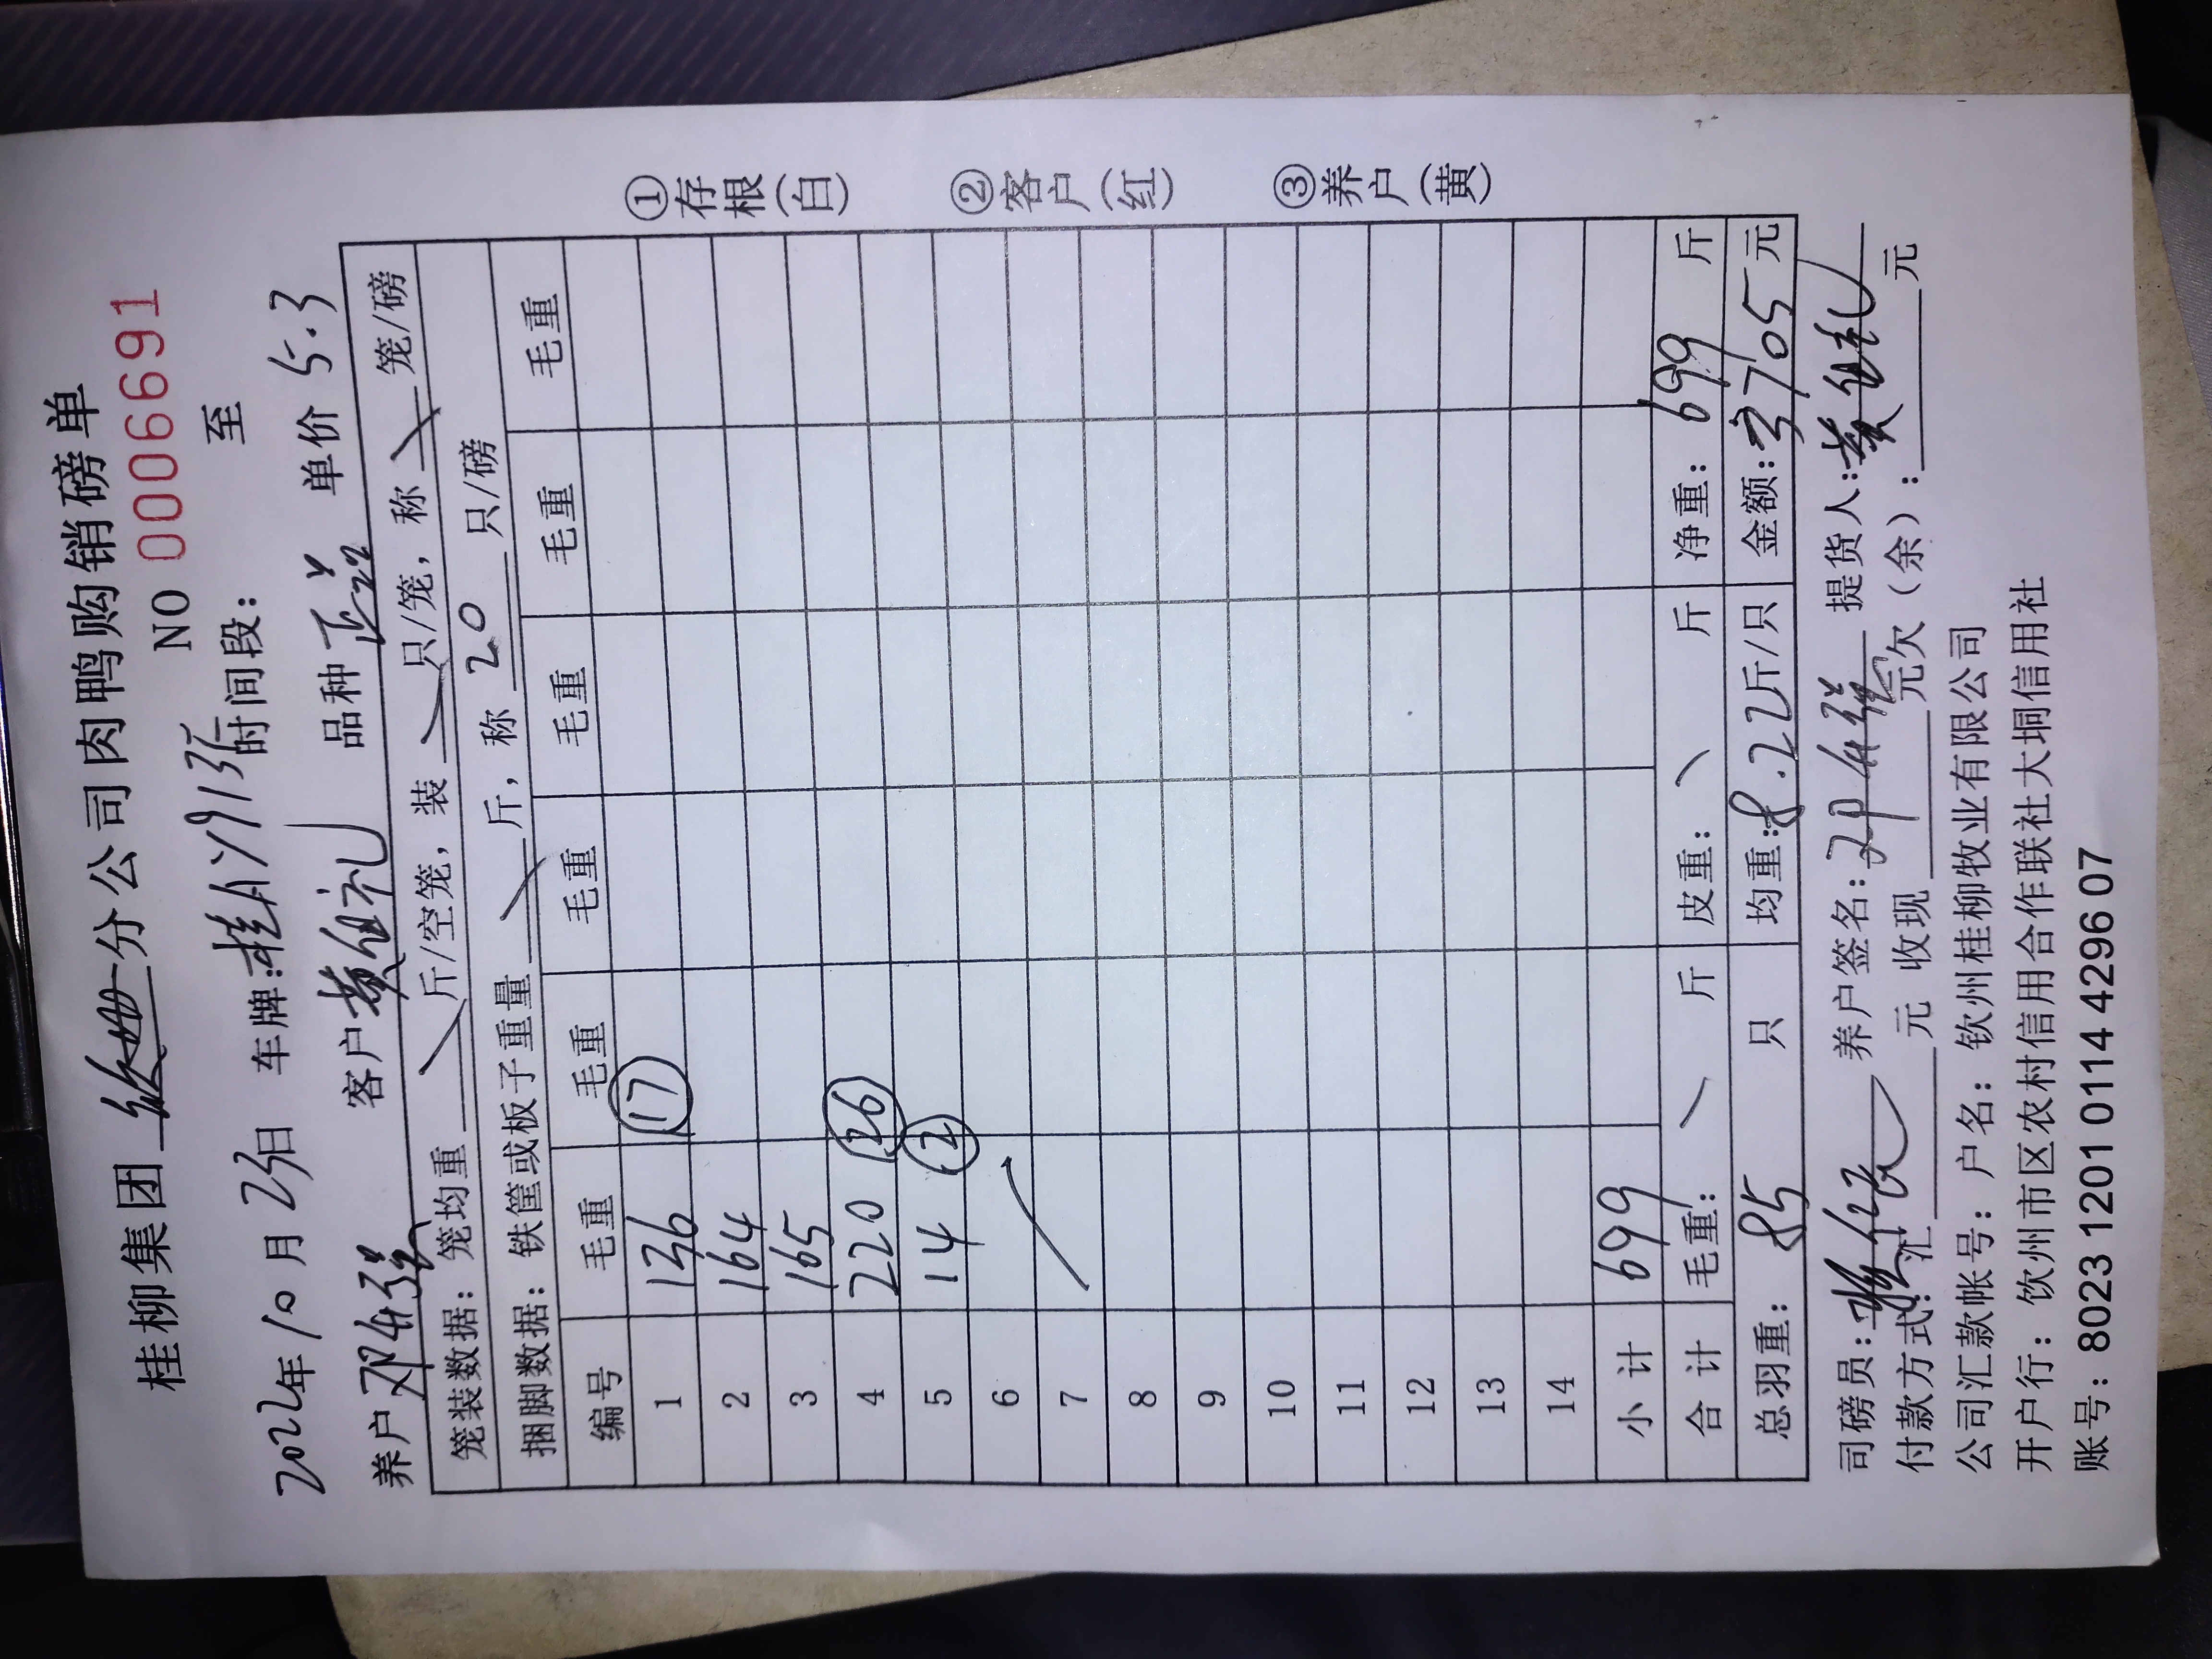 桂柳集团 分公司肉鸭购销磅单
NO 0006691
2022年10月23日 车牌: 时间段: 至
养户 邓 强 客户 黄 礼 品种 单价 5.3
笼装数据: 笼均重 斤/空笼, 装 只/笼, 称 笼/磅
捆脚数据: 铁筐或板子重量 斤, 称 20 只/磅
编号 毛重 毛重 毛重 毛重 毛重 毛重
1 136 17
2 164
3 165
4 220 26
5 14 2
6
7
8
9
10
11
12
13
14
小计 699
合计 毛重: 斤 皮重: 斤 净重: 699 斤
总羽重: 85 只 均重: 8.22斤/只 金额: 3705元
①存根(白) ②客户(红) ③养户(黄)
司磅员: 养户签名: 邓 强 提货人: 黄 礼
付款方式: 汇 元 收现 元欠(余): 元
公司汇款帐号: 户名: 钦州桂柳牧业有限公司
开户行: 钦州市区农村信用合作联社大垌信用社
账号: 8023 1201 0114 4296 07